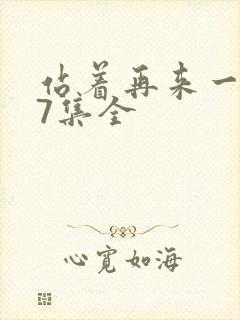 站着再来一
7集全
心宽如海